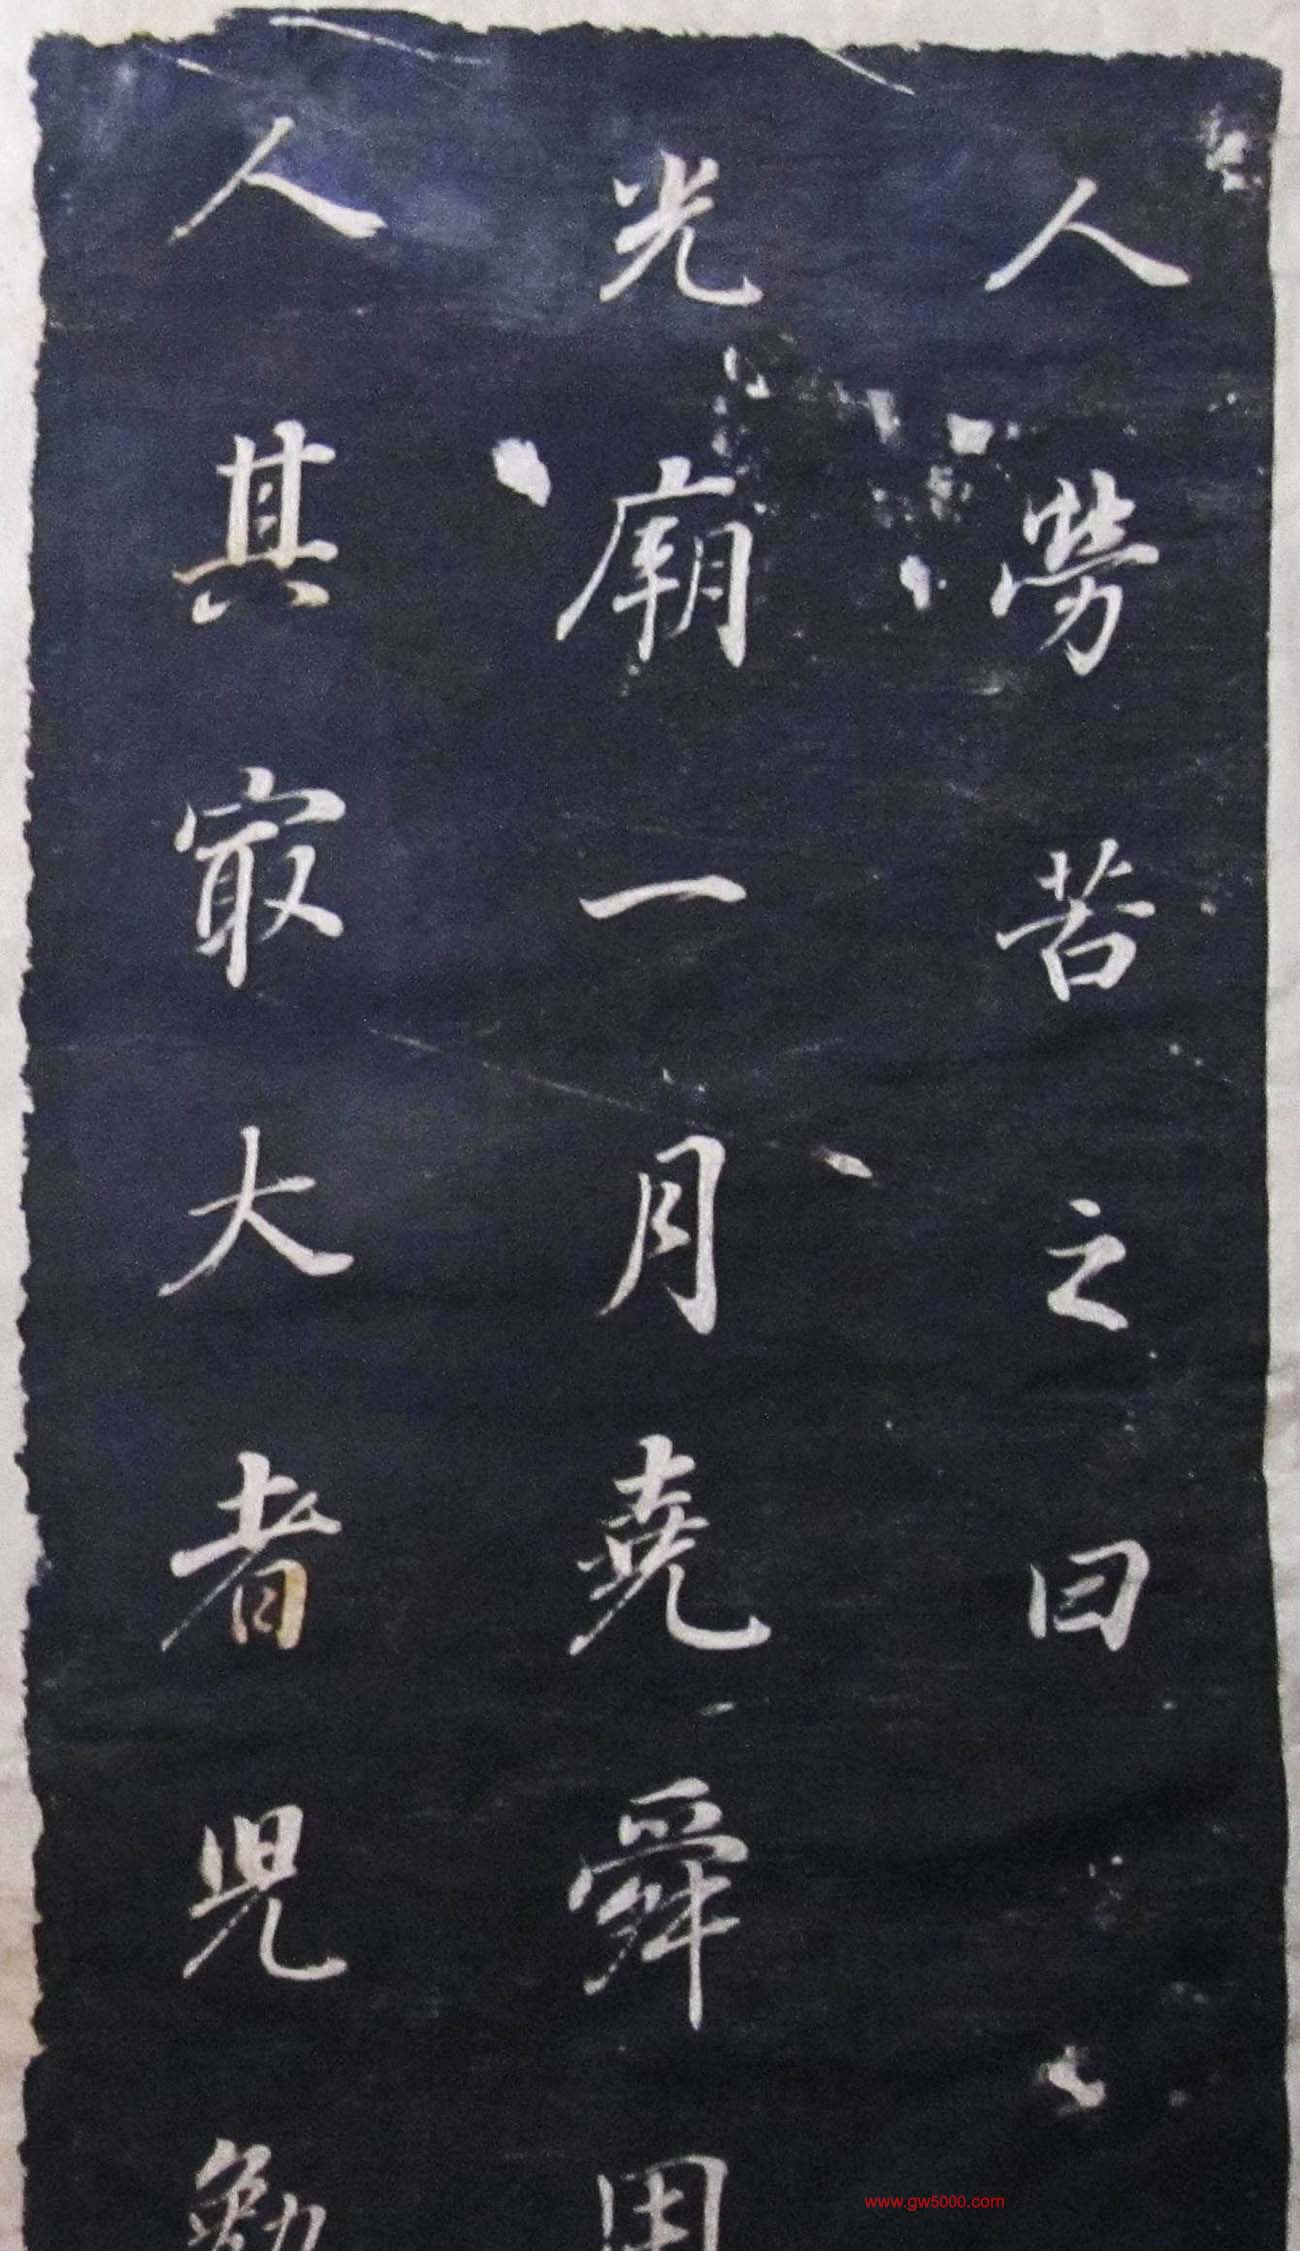 人勞苦之曰
光廟一月堯舜用
人其㝡大者児勤
www.gw5000.com